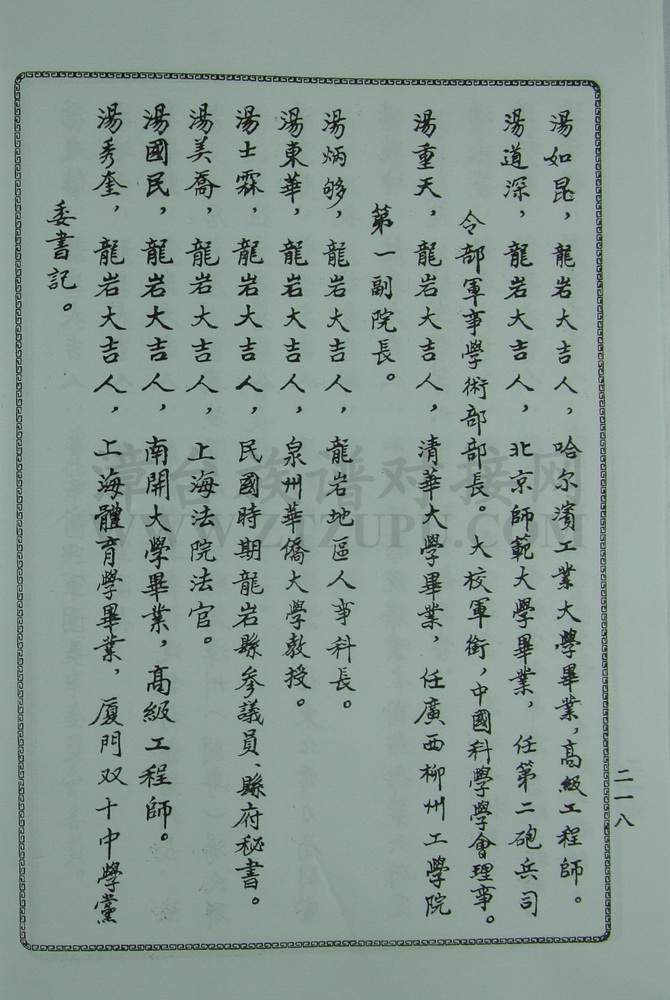 湯如昆，龍岩大吉人，哈尔濱工業大學畢業，高級工程師。
湯道深，龍岩大吉人，北京師範大學畢業，任第二砲兵司
令部軍事學術部部長。大校軍銜，中國科學學會理事。
湯重天，龍岩大吉人，清華大學畢業，任廣西柳州工學院
第一副院長。
湯炳够，龍岩大吉人，龍岩地區人事科長。
湯東華，龍岩大吉人，泉州華僑大學教授。
湯士霖，龍岩大吉人，民國時期龍岩縣参議員、縣府秘書。
湯美喬，龍岩大吉人，上海法院法官。
湯國民，龍岩大吉人，南開大學畢業，高級工程師。
湯秀奎，龍岩大吉人，上海體育學畢業，厦門双十中學黨
委書記。
二一八
漳台族谱对接网
WWW.ZTZUPU.COM